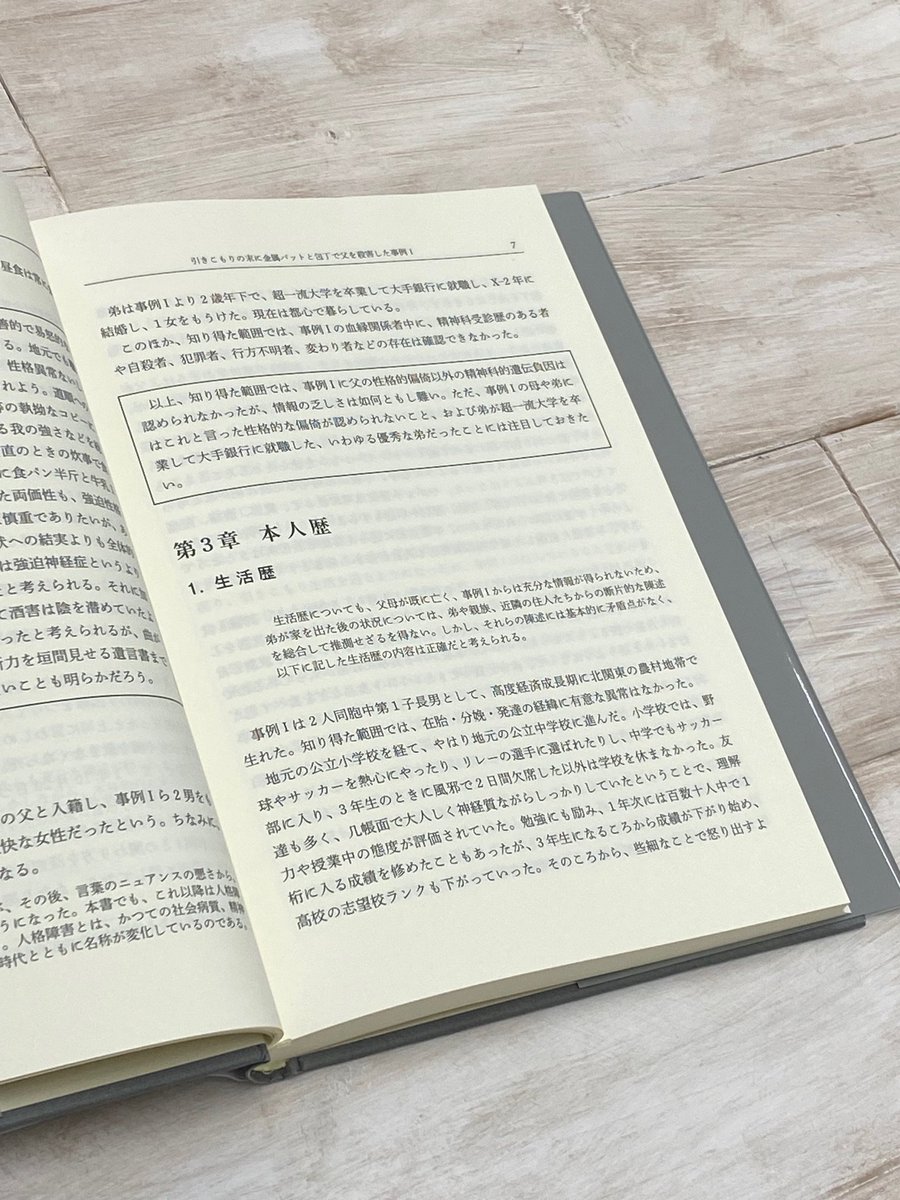 昼食は常に
善的で易怒的
る。地元でも
性格異常ない
れよう。道職への
等の執拗なコピー
る我の強さなどを
直のときの炊事で
に食パン半斤と牛乳
た両価性も、強迫性
慎重でありたいが、あ
状への結実よりも全体的
は強迫神経症というより
と考えられる。それに加
て酒害は陰を潜めていたよ
ったと考えられるが、曲が
断力を垣間見せる遺言書まで
いことも明らかだろう。
の父と入籍し、事例Iら2男をも
快な女性だったという。ちなみに、
なる。
、その後、言葉のニュアンスの悪さから、
うになった。本書でも、これ以降は人格障
。人格障害とは、かつての社会病質、精神
時代とともに名称が変化しているのである。
引きこもりの末に金属バットと包丁で父を殺害した事例I 7
弟は事例Iより2歳年下で、超一流大学を卒業して大手銀行に就職し、X-2年に
結婚し、1女をもうけた。現在は都心で暮らしている。
このほか、知り得た範囲では、事例Iの血縁関係者中に、精神科受診歴のある者
や自殺者、犯罪者、行方不明者、変わり者などの存在は確認できなかった。
以上、知り得た範囲では、事例Iに父の性格的偏倚以外の精神科的遺伝負因は
認められなかったが、情報の乏しさは如何ともし難い。ただ、事例Iの母や弟に
はこれと言った性格的な偏倚が認められないこと、および弟が超一流大学を卒
業して大手銀行に就職した、いわゆる優秀な弟だったことには注目しておきた
い。
第3章 本人歴
1. 生活歴
生活歴についても、父母が既に亡く、事例Iからは充分な情報が得られないため、
弟が家を出た後の状況については、弟や親族、近隣の住人たちからの断片的な陳述
を総合して推測せざるを得ない。しかし、それらの陳述には基本的に矛盾点がなく、
以下に記した生活歴の内容は正確だと考えられる。
事例Iは2人同胞中第1子長男として、高度経済成長期に北関東の農村地帯で
生れた。知り得た範囲では、在胎・分娩・発達の経緯に有意な異常はなかった。
地元の公立小学校を経て、やはり地元の公立中学校に進んだ。小学校では、野
球やサッカーを熱心にやったり、リレーの選手に選ばれたりし、中学でもサッカー
部に入り、3年生のときに風邪で2日間欠席した以外は学校を休まなかった。友
達も多く、几帳面で大人しく神経質ながらしっかりしていたということで、理解
力や授業中の態度が評価されていた。勉強にも励み、1年次には百数十人中で1
桁に入る成績を修めたこともあったが、3年生になるころから成績が下がり始め、
高校の志望校ランクも下がっていった。そのころから、些細なことで怒り出すよ